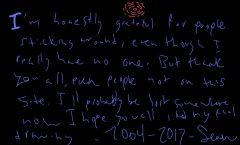 I'm honestly grateful for people
sticking around, even though I
really have no one. But thank
you all, even people not on this
site. I'll probably be lost somewhere
now I hope you all my final
drawing. 2004-2017-Sean